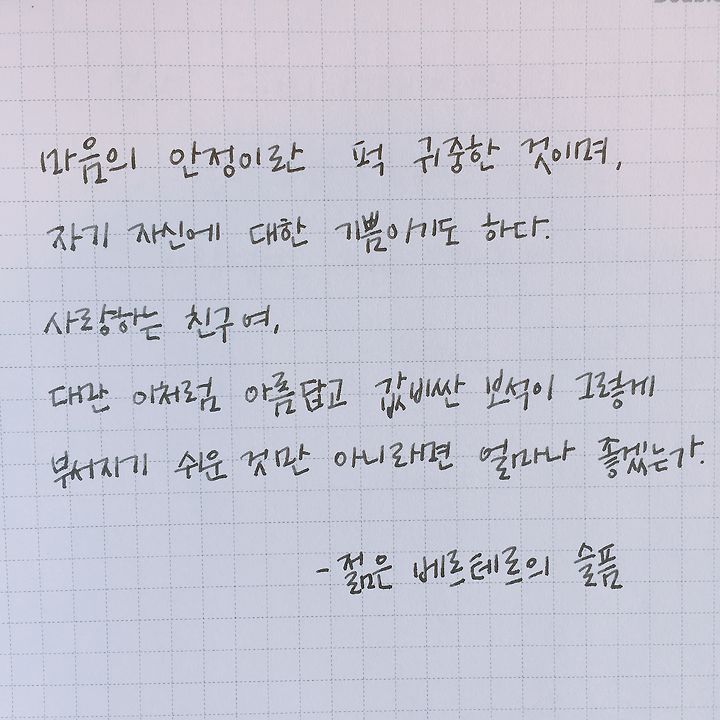 마음의 안정이란 퍽 귀중한 것이며,
자기 자신에 대한 기쁨이기도 하다.
사랑하는 친구여,
다만 이처럼 아름답고 값비싼 보석이 그렇게
부서지기 쉬운 것만 아니라면 얼마나 좋겠는가.
- 젊은 베르테르의 슬픔